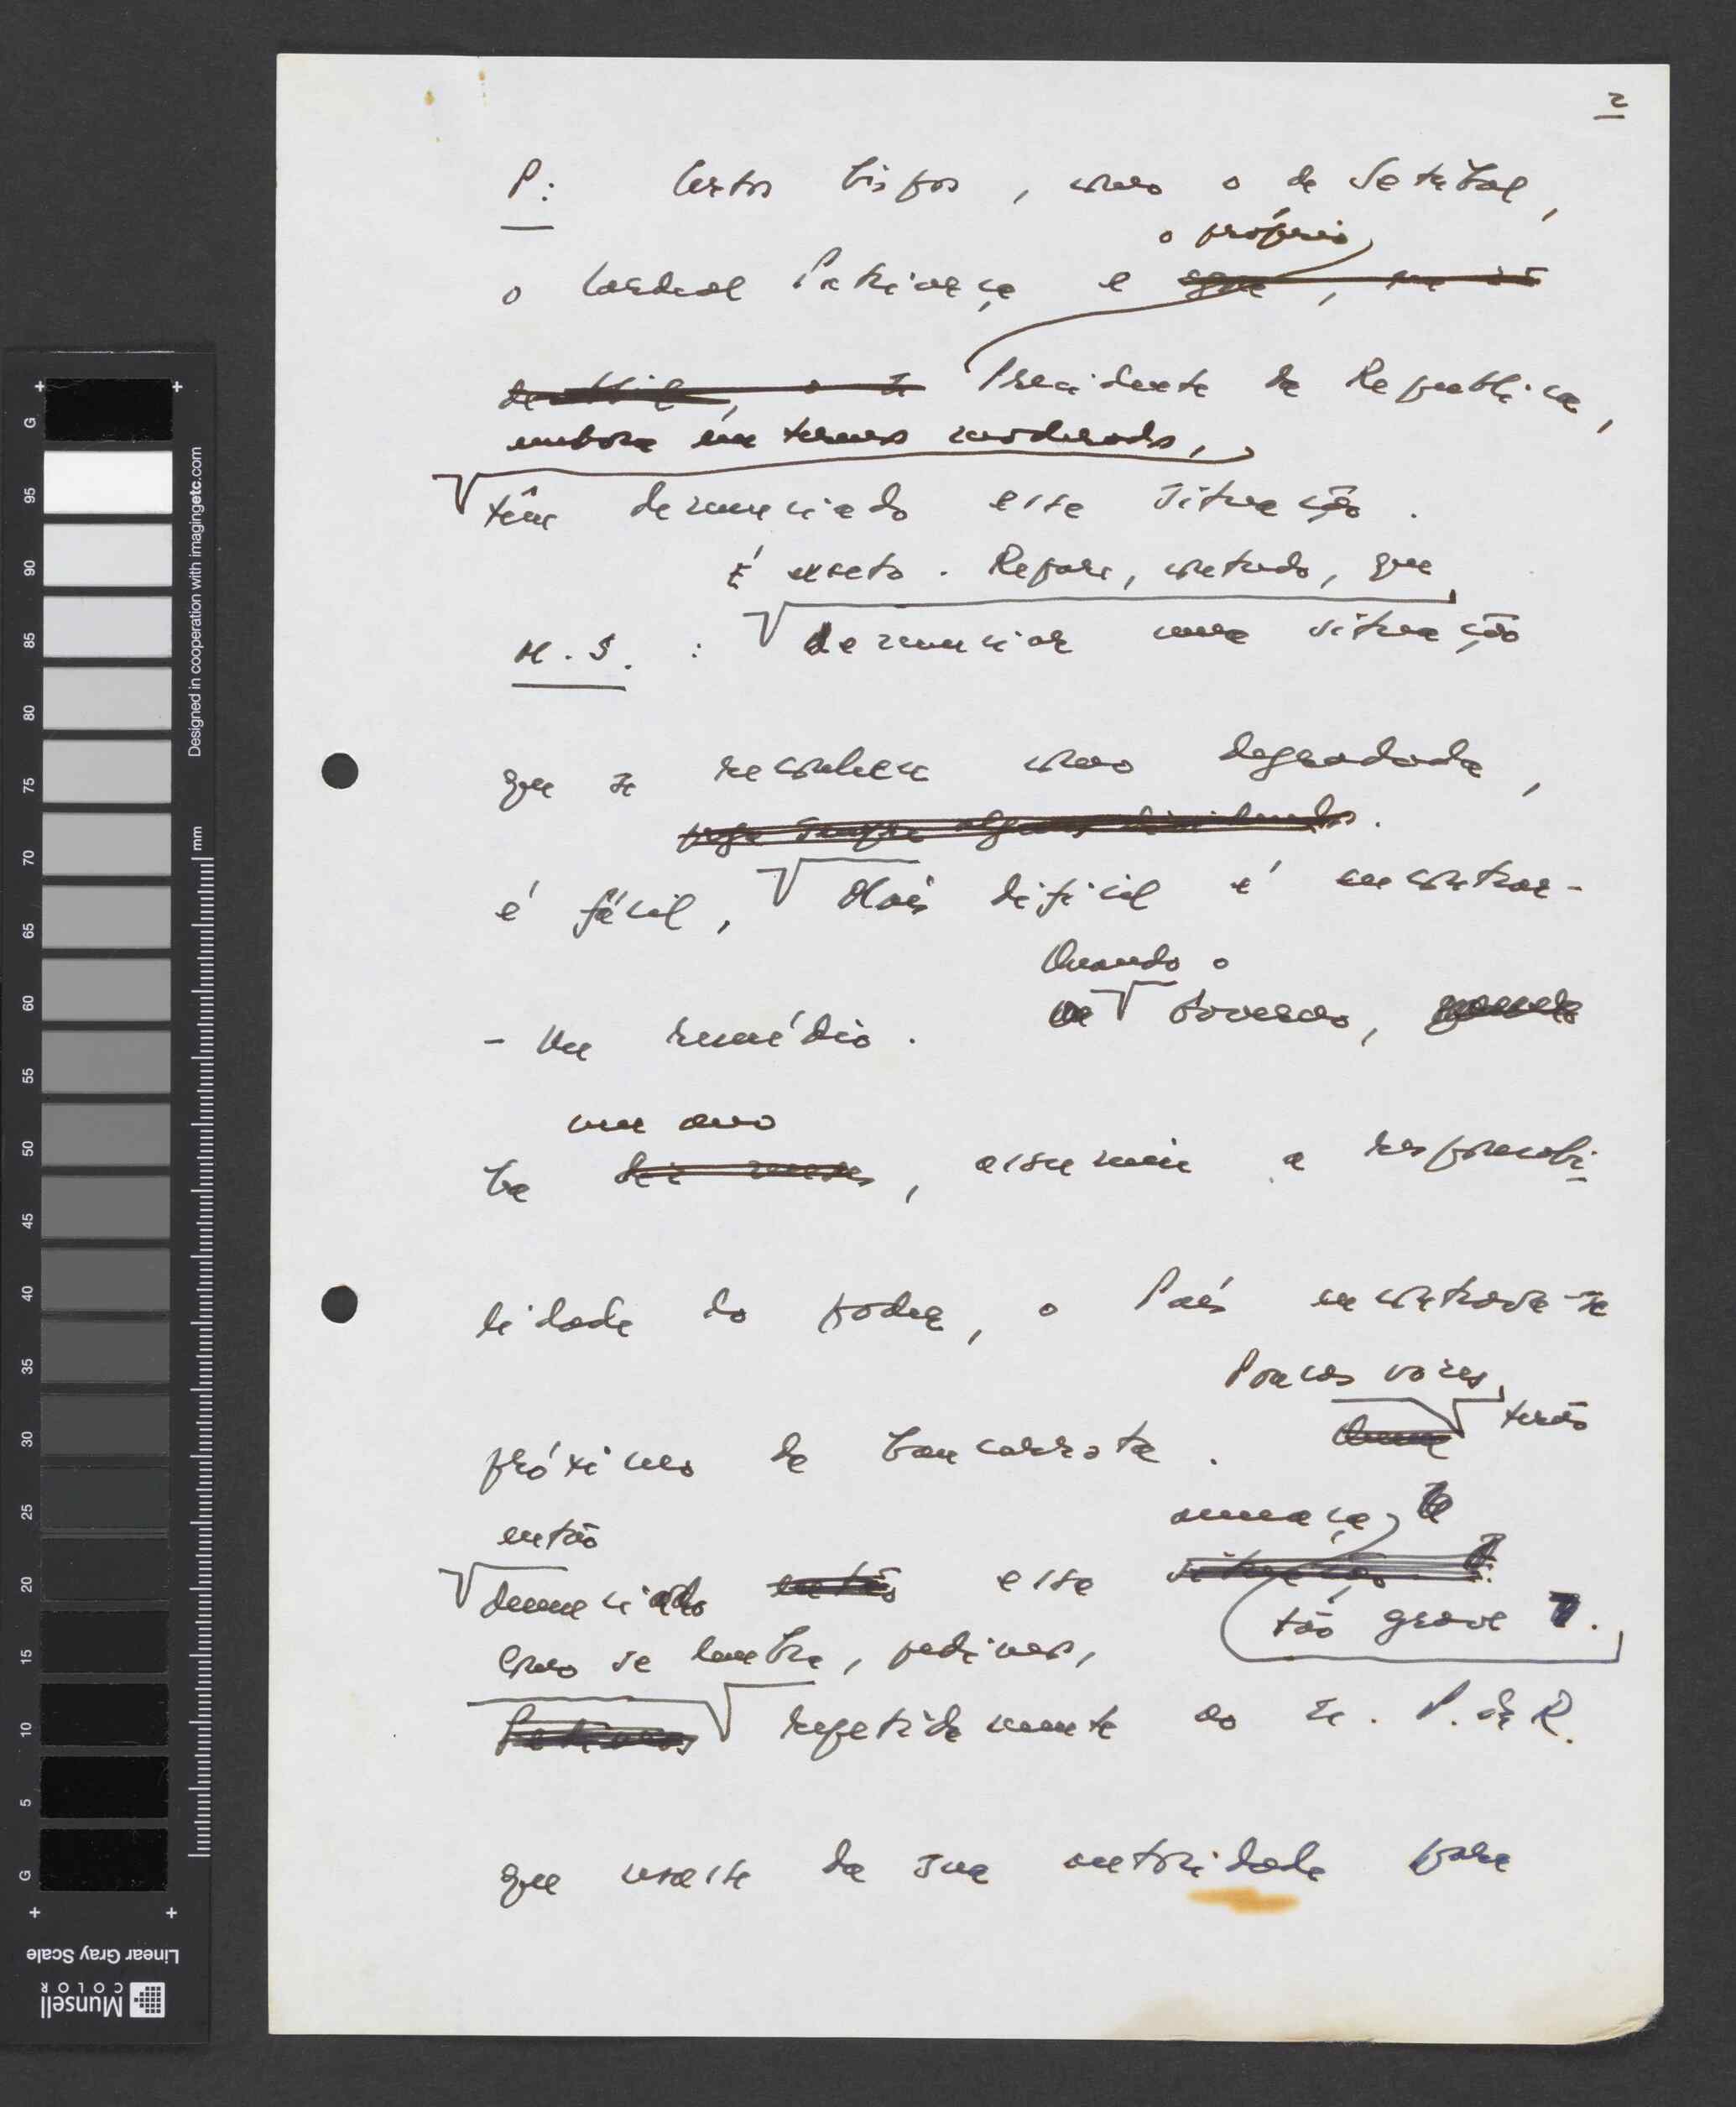 2
P: Certos bispos, como o de Setúbal,
o próprio
o Cardeal Patriarca e
Presidente da República,
embora em termos moderados,
têm denunciado essa situação.
É exacto. Repare, contudo, que
M.S.: denunciar uma situação
que se reconhece como degradada,
é fácil, Mais dificil é encontrar-
Quando o
-lhe remédio. Governo,
um ano
há seis meses, assumiu a responsabi
lidade do poder, o País encontrava-se
Poucas vozes
próximo da bancarrota. terão
então
ameaça
denunciado então essa situação
tão grave.
Como se lembra, pedimos,
repetidamente ao Sr. P. da R.
que usasse da sua autoridade para
G
95
90
85
80
75
70
65
60
55
50
45
40
35
30
25
20
15
10
5
G
mm
Designed in cooperation with imagingetc.com
Linear Gray Scale
Munsell
COLOR